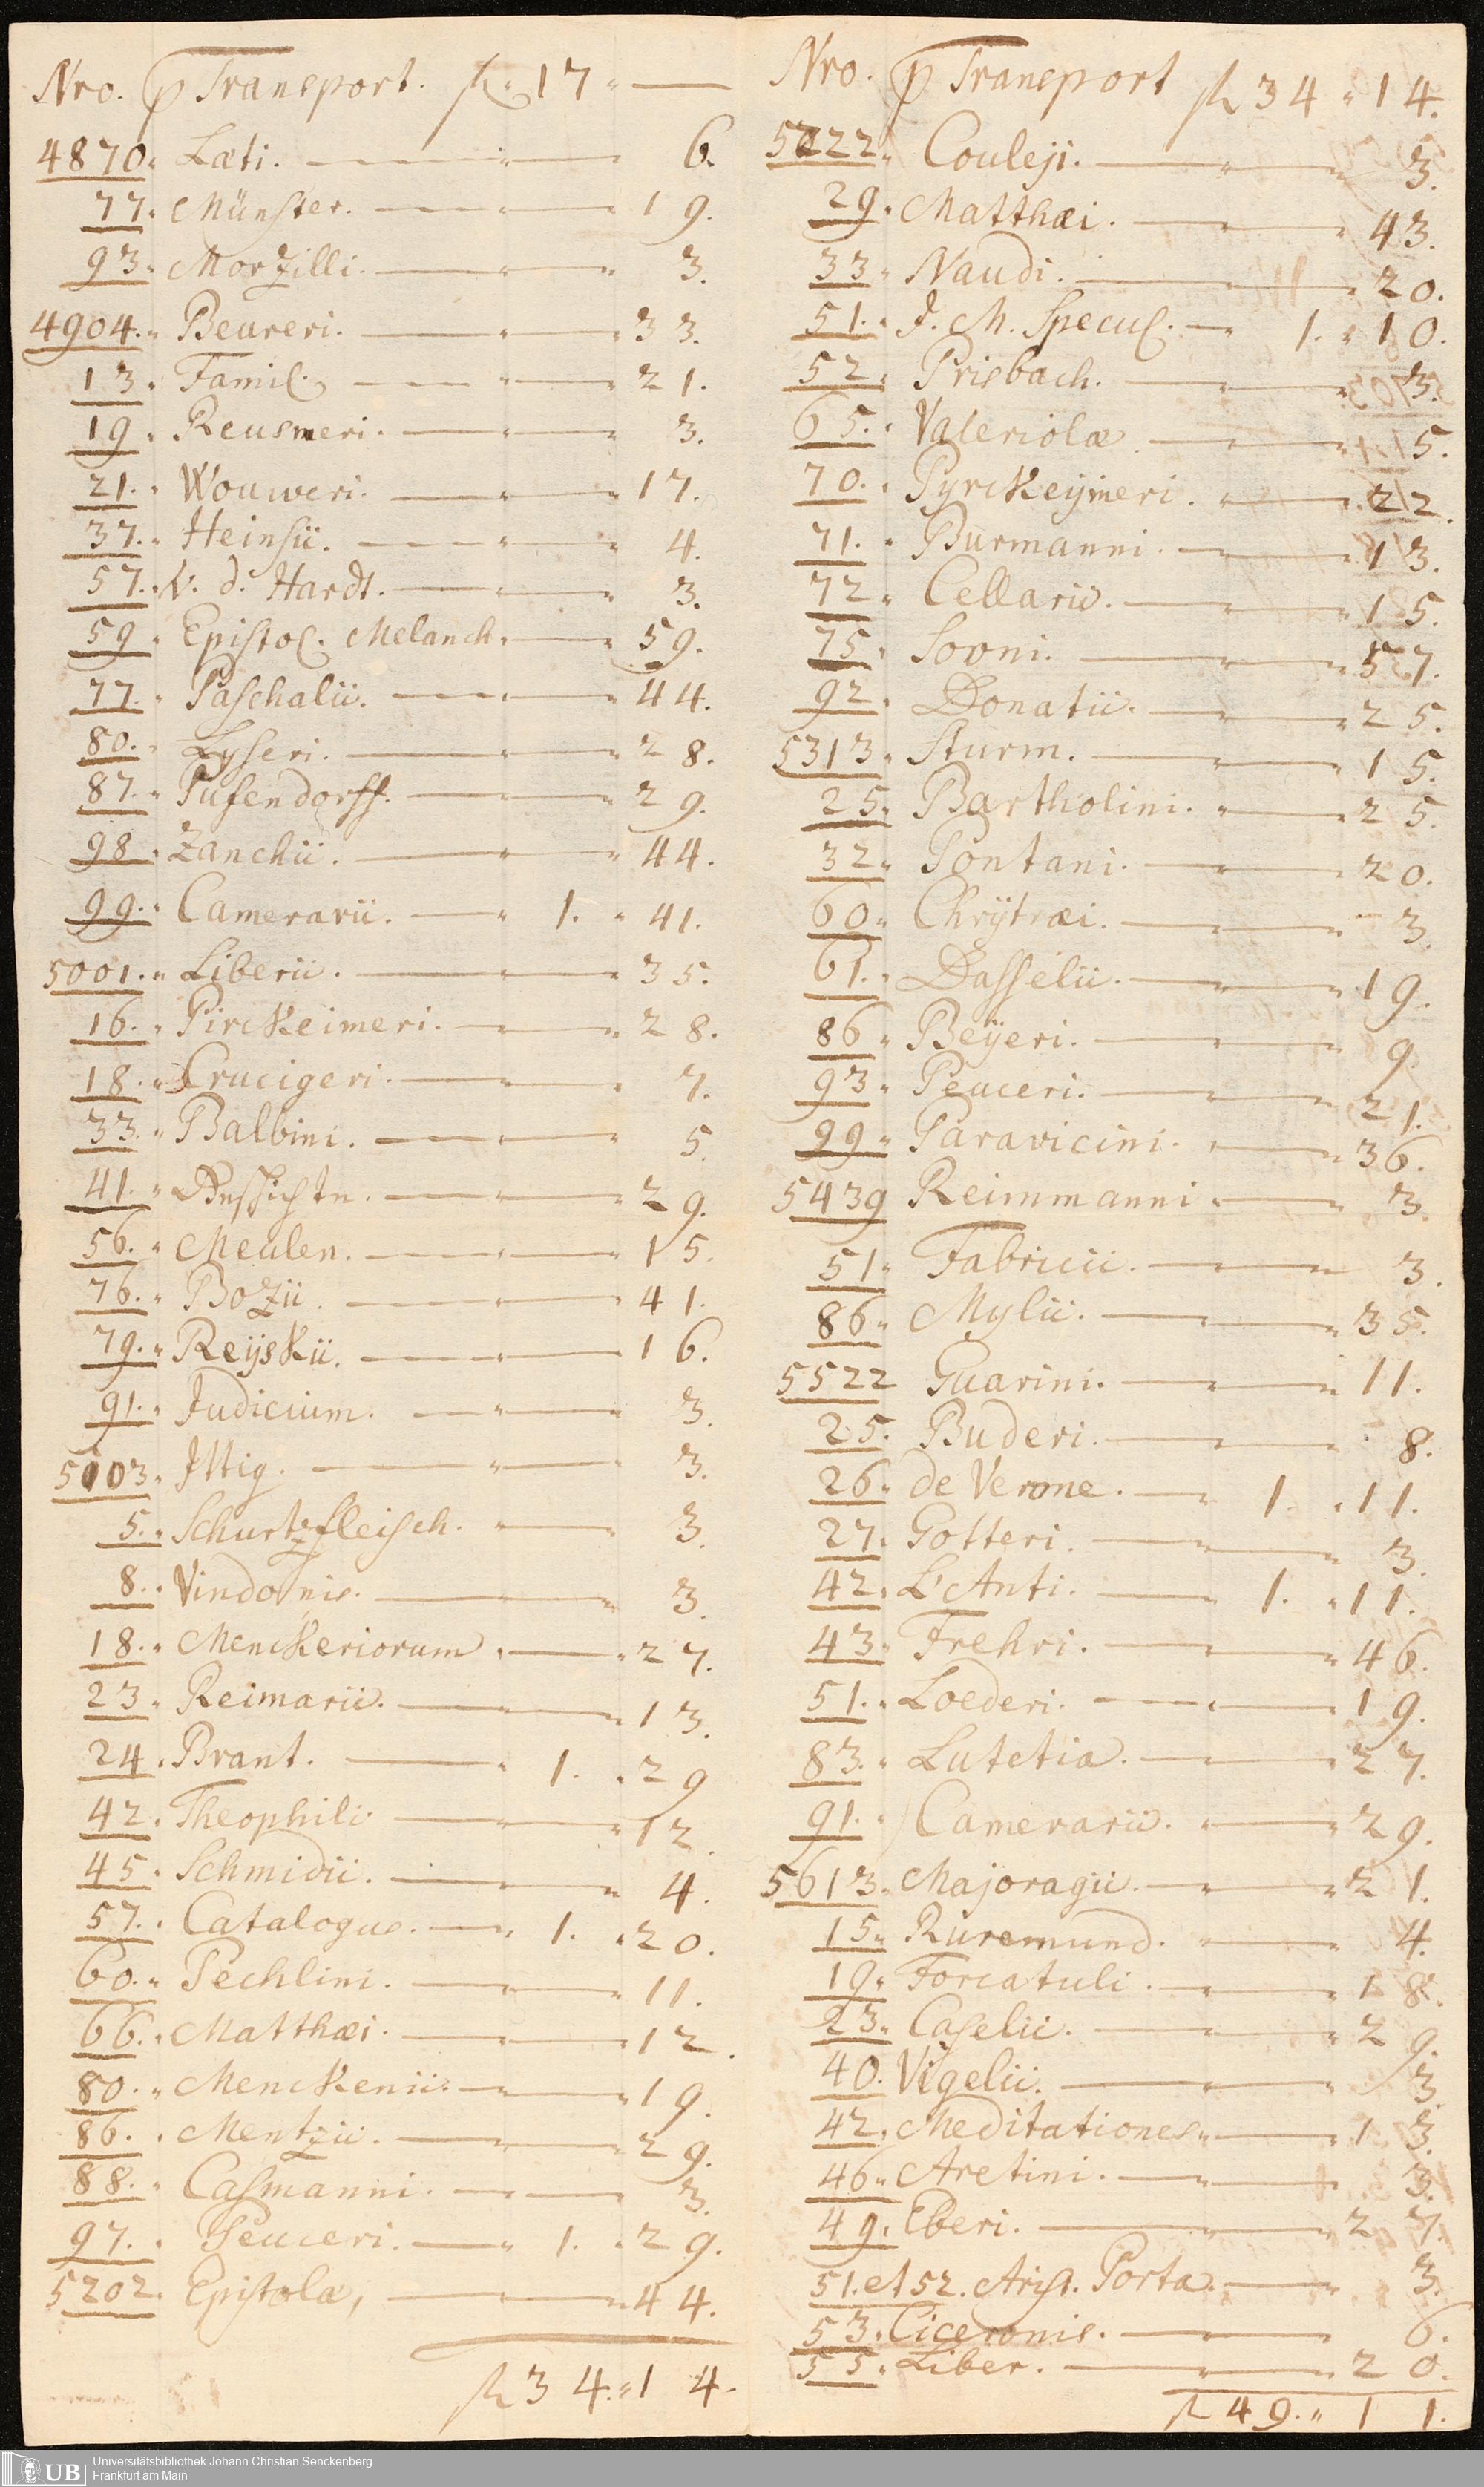 Nro. p Transport. fl. 17 "
4870. Læti. 6.
77. Münster. 19.
93. Morzilli. 3.
4904. Beureri. 33.
13. Famil. 21.
19. Reusneri. 3.
21. Wouweri. 17.
37. Heinsii. 4.
57. V. d. Hardt. 3.
59. Epistol. Melanch. 59.
77. Paschalii. 44.
80. Lyseri. 28.
87. Pufendorff. 29.
98. Zanchii. 44.
99. Camerarii. 1. 41.
5001. Liberii. 35.
16. Pirckeimeri. 28.
18. Crucigeri. 7.
33. Balbini. 5.
41. 29.
56. Meulen. 15.
76. Bozii. 41.
79. Reijskii. 16.
91. Judicium. 3.
5103. Ittig. 3.
5. Schurtzfleisch. 3.
8. Vindonis. 3.
18. Menckeriorum. 27.
23. Reimarii. 13.
24. Brant. 1. 29
42. Theophili 12.
45. Schmidii. 4.
57. Catalogus. 1. 20.
60. Pechlini. 11.
66. Matthæi. 12.
80. Menckenii. 19.
86. Mentzii. 29.
88. Casmanni. 3.
97. Peuceri. 1. 29.
5202. Epistolæ, 44.
fl 34. " 14.
Nro. p Transport fl 34 " 14.
5222. Couleji. 3.
29. Matthæi. 43.
33. Naudi. 20.
51. J. M. Specul. 1. 10.
52. Prisbach. 3.
65. Valeriolæ 5.
70. Pyrckeijmeri. 22.
71. Burmanni. 13.
72. Cellarii. 15.
75. Sovni. 57.
92. Donatii. 25.
5313. Sturm. 15.
25. Bartholini. 25.
32. Pontani. 20.
60. Chrijtræi. 3.
61. Dasselii. 19.
86. Beijeri. 9.
93. Peuceri. 21.
99. Paravicini. 36.
5439 Reimmanni. 3.
51. Fabricii. 3.
86. Mylii. 35.
5522 Guarini. 11.
25. Buderi. 8.
26. de Verone. 1. 11.
27. Gotteri. 3.
42. L'Anti. 1. 11.
43. Frehri. 46.
51. Loederi. 19.
83. Lutetia. 27.
91. Camerarii. 29.
5613. Majoragii. 21.
15. Ruremund. 4.
19. Forcatuli. 18.
23. Caselii. 29.
40. Vigelii. 3.
42. Meditationes. 13.
46. Aretini. 3.
49. Eberi. 27.
51. et 52. Arist. Porta. 3.
53. Ciceronis. 6.
55. Liber. 20.
fl 49. " 11.
UB Universitätsbibliothek Johann Christian Senckenberg
Frankfurt am Main